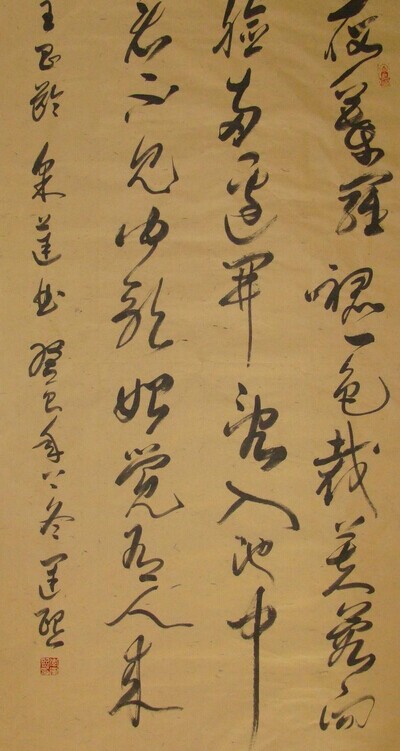 荷葉羅裙一色裁芙蓉向
臉兩邊開亂入池中
看不見聞歌始覺有人來
王昌齡采蓮曲癸巳年冬